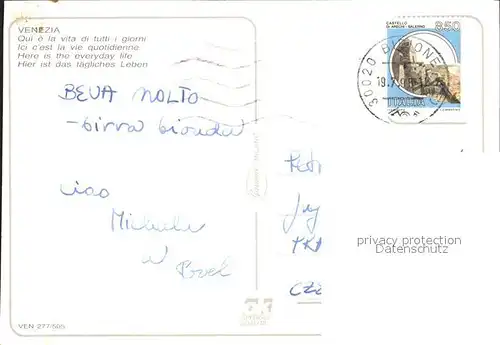 VENEZIA
Qui è la vita di tutti i giorni
Ici c'est la vie quotidienne
Here is the everyday life
Hier ist das tägliches Leben
CASTELLO
DI ARECHI - SALERNO
850
ITALIA
30020
19.7.9
BEVA MOLTO
-birra bionda
ciao
Michele
privacy protection
Datenschutz
VEN 277/505